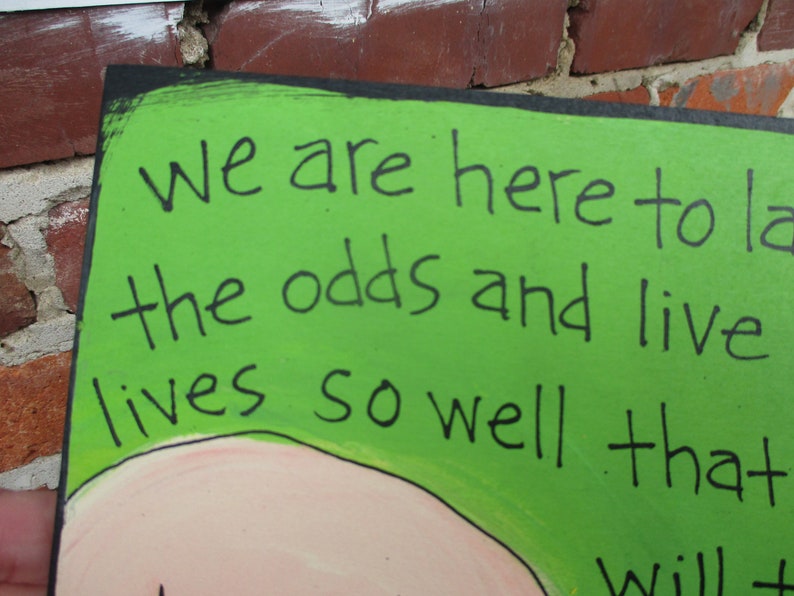 we are here to la
the odds and live
lives so well that
will t